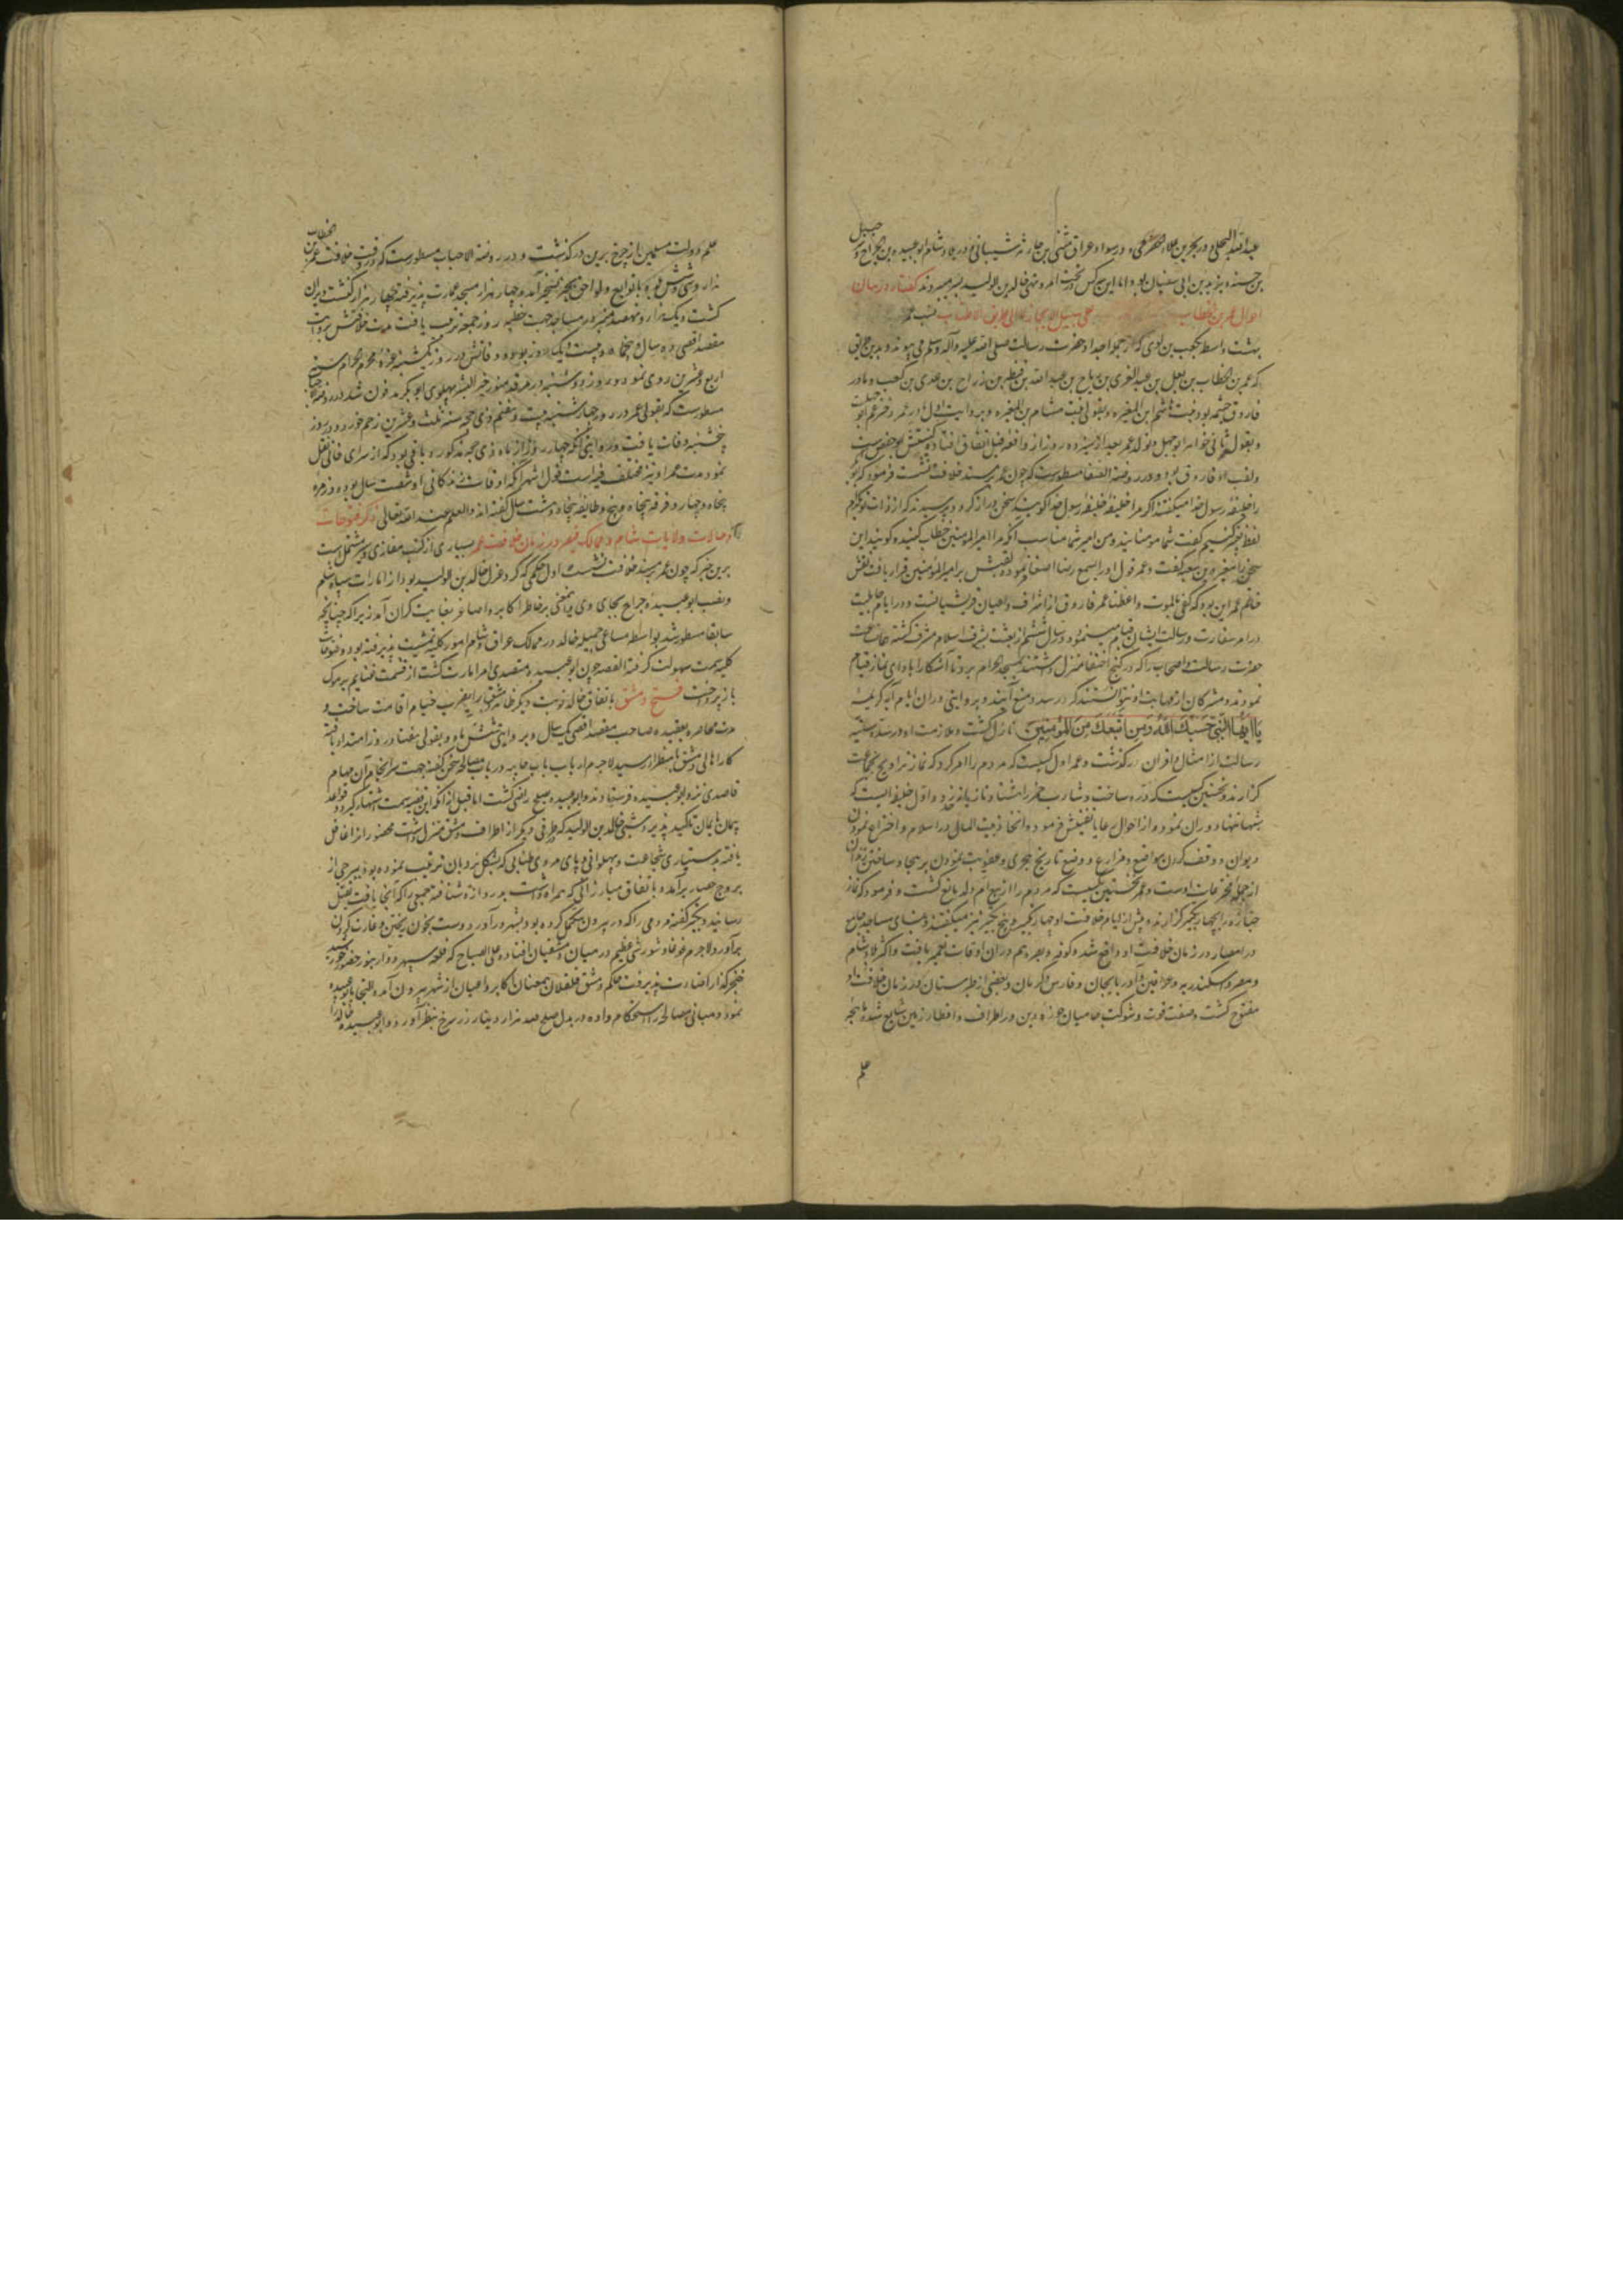 عبدالله البجلی و در بحرین علاء حضرمی و در سواد عراق مثنی بن حارثه شیبانی و در بلاد شام ابوعبیده بن الجراح و شرحبیل
بن حسنه و یزید بن ابی سفیان بود و اما این سه کس در تحت امر و نهی خالد بن الولید بسر میبردند گفتار در بیان
احوال عمر بن الخطاب علی سبیل الایجاز لا علی طریق الاطناب نسب عمر
بهشت واسطه بکعب بن لوی که از جمله اجداد حضرت رسالت صلی الله علیه وآله وسلم می پیوندد بدین موجب
که عمر بن الخطاب بن نفیل بن عبد العزی بن ریاح بن عبد الله بن قرط بن رزاح بن عدی بن کعب و مادر
فاروق حنتمه بود بنت هاشم بن المغیره و بقولی بنت هشام بن المغیره و بروایت اول مادر عمر دختر عم ابوجهل است
و بقول ثانی خواهر ابوجهل و تولد عمر بعد از سیزده روز از واقعه فیل اتفاق افتاد و کنیتش ابو حفص است
ولقب او فاروق بود و در روضة الصفا مسطورست که چون عمر بر مسند خلافت نشست فرمود که ابوبکر
را خلیفه رسول خدا میگفتند اگر مرا خلیفه خلیفه رسول خدا گویند سخن دراز گردد
گفت شما مومنانید و من امیر شما مناسب آنکه مرا امیر المومنین خطاب کنید و گویند این
سخن را مغیره بن شعبه گفت و عمر قول او را بسمع رضا اصغا نموده لقبش بر امیر المومنین قرار یافت نقش
خاتم عمر این بود که کفی بالموت واعظا عمر فاروق از اشراف و اعیان قریش بانست و در ایام جاهلیت
در امر سفارت و رسالت ایشان قیام مینمود و در سال ششم از بعثت بشرف اسلام مشرف گشته
حضرت رسالت و اصحاب را که در کنج اختفا منزل داشتند بمسجد الحرام برد تا آشکارا بادای نماز قیام
نمودند و مشرکان از مهابت او نتوانستند که در صدد منع آیند و بروایتی در ان ایام آیه کریمه
یا ایها النبی حسبک الله ومن اتبعک من المؤمنین نازل گشت و ملازمت او در سده سنیه
رسالت از امثال و اقران درگذشت و عمر اول کسیست که مردم را امر کرد که نماز تراویح بجماعت
گزارند و نخستین کسیست که دره ساخت و شارب خمر را هشتاد تازیانه زد و اول خلیفه ایست که
شبها تنها دوران نمود و از احوال رعایا تفتیش فرمود و اتخاذ بیت المال در اسلام و اختراع نمودن
دیوان و وقف کردن مواضع و مزارع و وضع تاریخ هجری و عقوبت نمودن بر هجا و ساختن زندان
از جمله مخترعات اوست و عمر نخستین کسیست که مردم را از بیع ام ولد مانع گشت و فرمود که نماز
جنازه را بچهار تکبیر گزارند و پیش از ایام خلافت او چهار تکبیر و پنج تکبیر نیز میگفتند و بنای مساجد جامع
در امصار در زمان خلافت او واقع شد و کوفه و بصره هم در ان اوقات تعمیر یافت و اکثر بلاد شام
و مصر و اسکندریه و عراقین و اذربایجان و فارس و کرمان و بعضی از طبرستان در زمان خلافت او
مفتوح گشت و صفت قوت و شوکت حامیان حوزه دین در اطراف و اقطار زمین شایع شد
علم
علم دولت مسلمین از چرخ برین درگذشت و در روضة الاحباب مسطورست که در وقت خلافت عمر بن الخطاب
هزار و سی و شش شهر با توابع و لواحق بحیز تسخیر آمد و چهار هزار مسجد عمارت پذیرفت و چهار هزار کنشت ویران
گشت و یکهزار و نهصد منبر در مساجد جهت خطبه روز جمعه ترتیب یافت مدت خلافتش بروایت
مقصد اقصی ده سال و پنجماه و بیست و یک روز بود و وفاتش در روز یکشنبه غره محرم الحرام سنه
اربع و عشرین روی نمود و روز دوشنبه در مرقد منور خیر البشر بپهلوی ابوبکر مدفون شد و در روضة الاحباب
مسطورست که بقولی عمر در روز چهارشنبه بیست و هفتم ذی الحجه سنه ثلث و عشرین زخم خورد و در روز
پنجشنبه وفات یافت و بروایتی آنکه چهار روز از ماه ذی حجه مذکوره باقی بود که از سرای فانی نقل
نمود مدت عمر او نیز مختلف فیه است قول اشهر آنکه اوقات زندگانی او شصت سال بود و زمره
پنجاه و چهار و فرقه پنجاه و پنج و طایفه پنجاه و هشت سال گفته اند و العلم عند الله تعالی ذکر فتوحات
و حالات ولایات شام و ممالک قیصر در زمان خلافت عمر بسیاری از کتب مغازی و سیر مشتمل است
برین خبر که چون عمر بر مسند خلافت نشست اول حکمی که کرد عزل خالد بن الولید بود از امارت سپاه شام
و نصب ابوعبیده جراح بجای وی و این معنی بر خاطر اکابر و اصاغر بغایت گران آمد زیرا که چنانچه
سابقا مسطور شد بواسطه مساعی جمیله خالد در ممالک عراق و شام امور کلیه تمشیت پذیرفته بود و فتوحات
کلیه سمت سهولت گرفته القصه چون ابوعبیده متصدی امر امارت گشت از قسمت غنایم یرموک
بازپرداخت فتح دمشق باتفاق خالد نوبت دیگر ظاهر دمشق را مضرب خیام اقامت ساخت و
مدت محاصره بعقیده صاحب مقصد اقصی یکسال و بروایتی شش ماه و بقولی هفتاد روز امتداد یافته
کار اهالی دمشق باضطرار رسید لاجرم ارباب باب جابیه در باب مصالحه سخن گفته جهت سرانجام آن مهام
قاصدی نزد ابوعبیده فرستادند و ابوعبیده بصلح راضی گشت اما قبل از آنکه این قضیه سمت اشتهار گیرد و قواعد
پیمان بایمان تاکید پذیرد شبی خالد بن الولید که در طرفی دیگر از اطراف دمشق منزل داشت محصوران را غافل
یافته بدستیاری شجاعت و پهلوانی و پای مردی طنابی که بشکل نردبان ترتیب نموده بود ببرجی از
بروج حصار برآمد و باتفاق مبارزانی که همراه داشت بدروازه شتافته جمعی را که آنجا یافت بقتل
رسانید و تکبیر گفته مردمی را که در بیرون مکمل کرده بود بشهر درآورد و دست بخون ریختن و غارت کردن
برآورد لاجرم غوغا و شورشی عظیم در میان دمشقیان افتاد و علی الصباح که قلعه سپهر دوار بنور حضور خورشید
خنجرگذار اضاءت پذیرفت حاکم دمشق قلقلان بهمعنان اکابر و اعیان از شهر بیرون آمده التجا بابوعبیده
نمود و مبانی مصالحه را استحکام داده در بدل صلح صد هزار دینار زر سرخ بنظر آورد و ابوعبیده خالد را